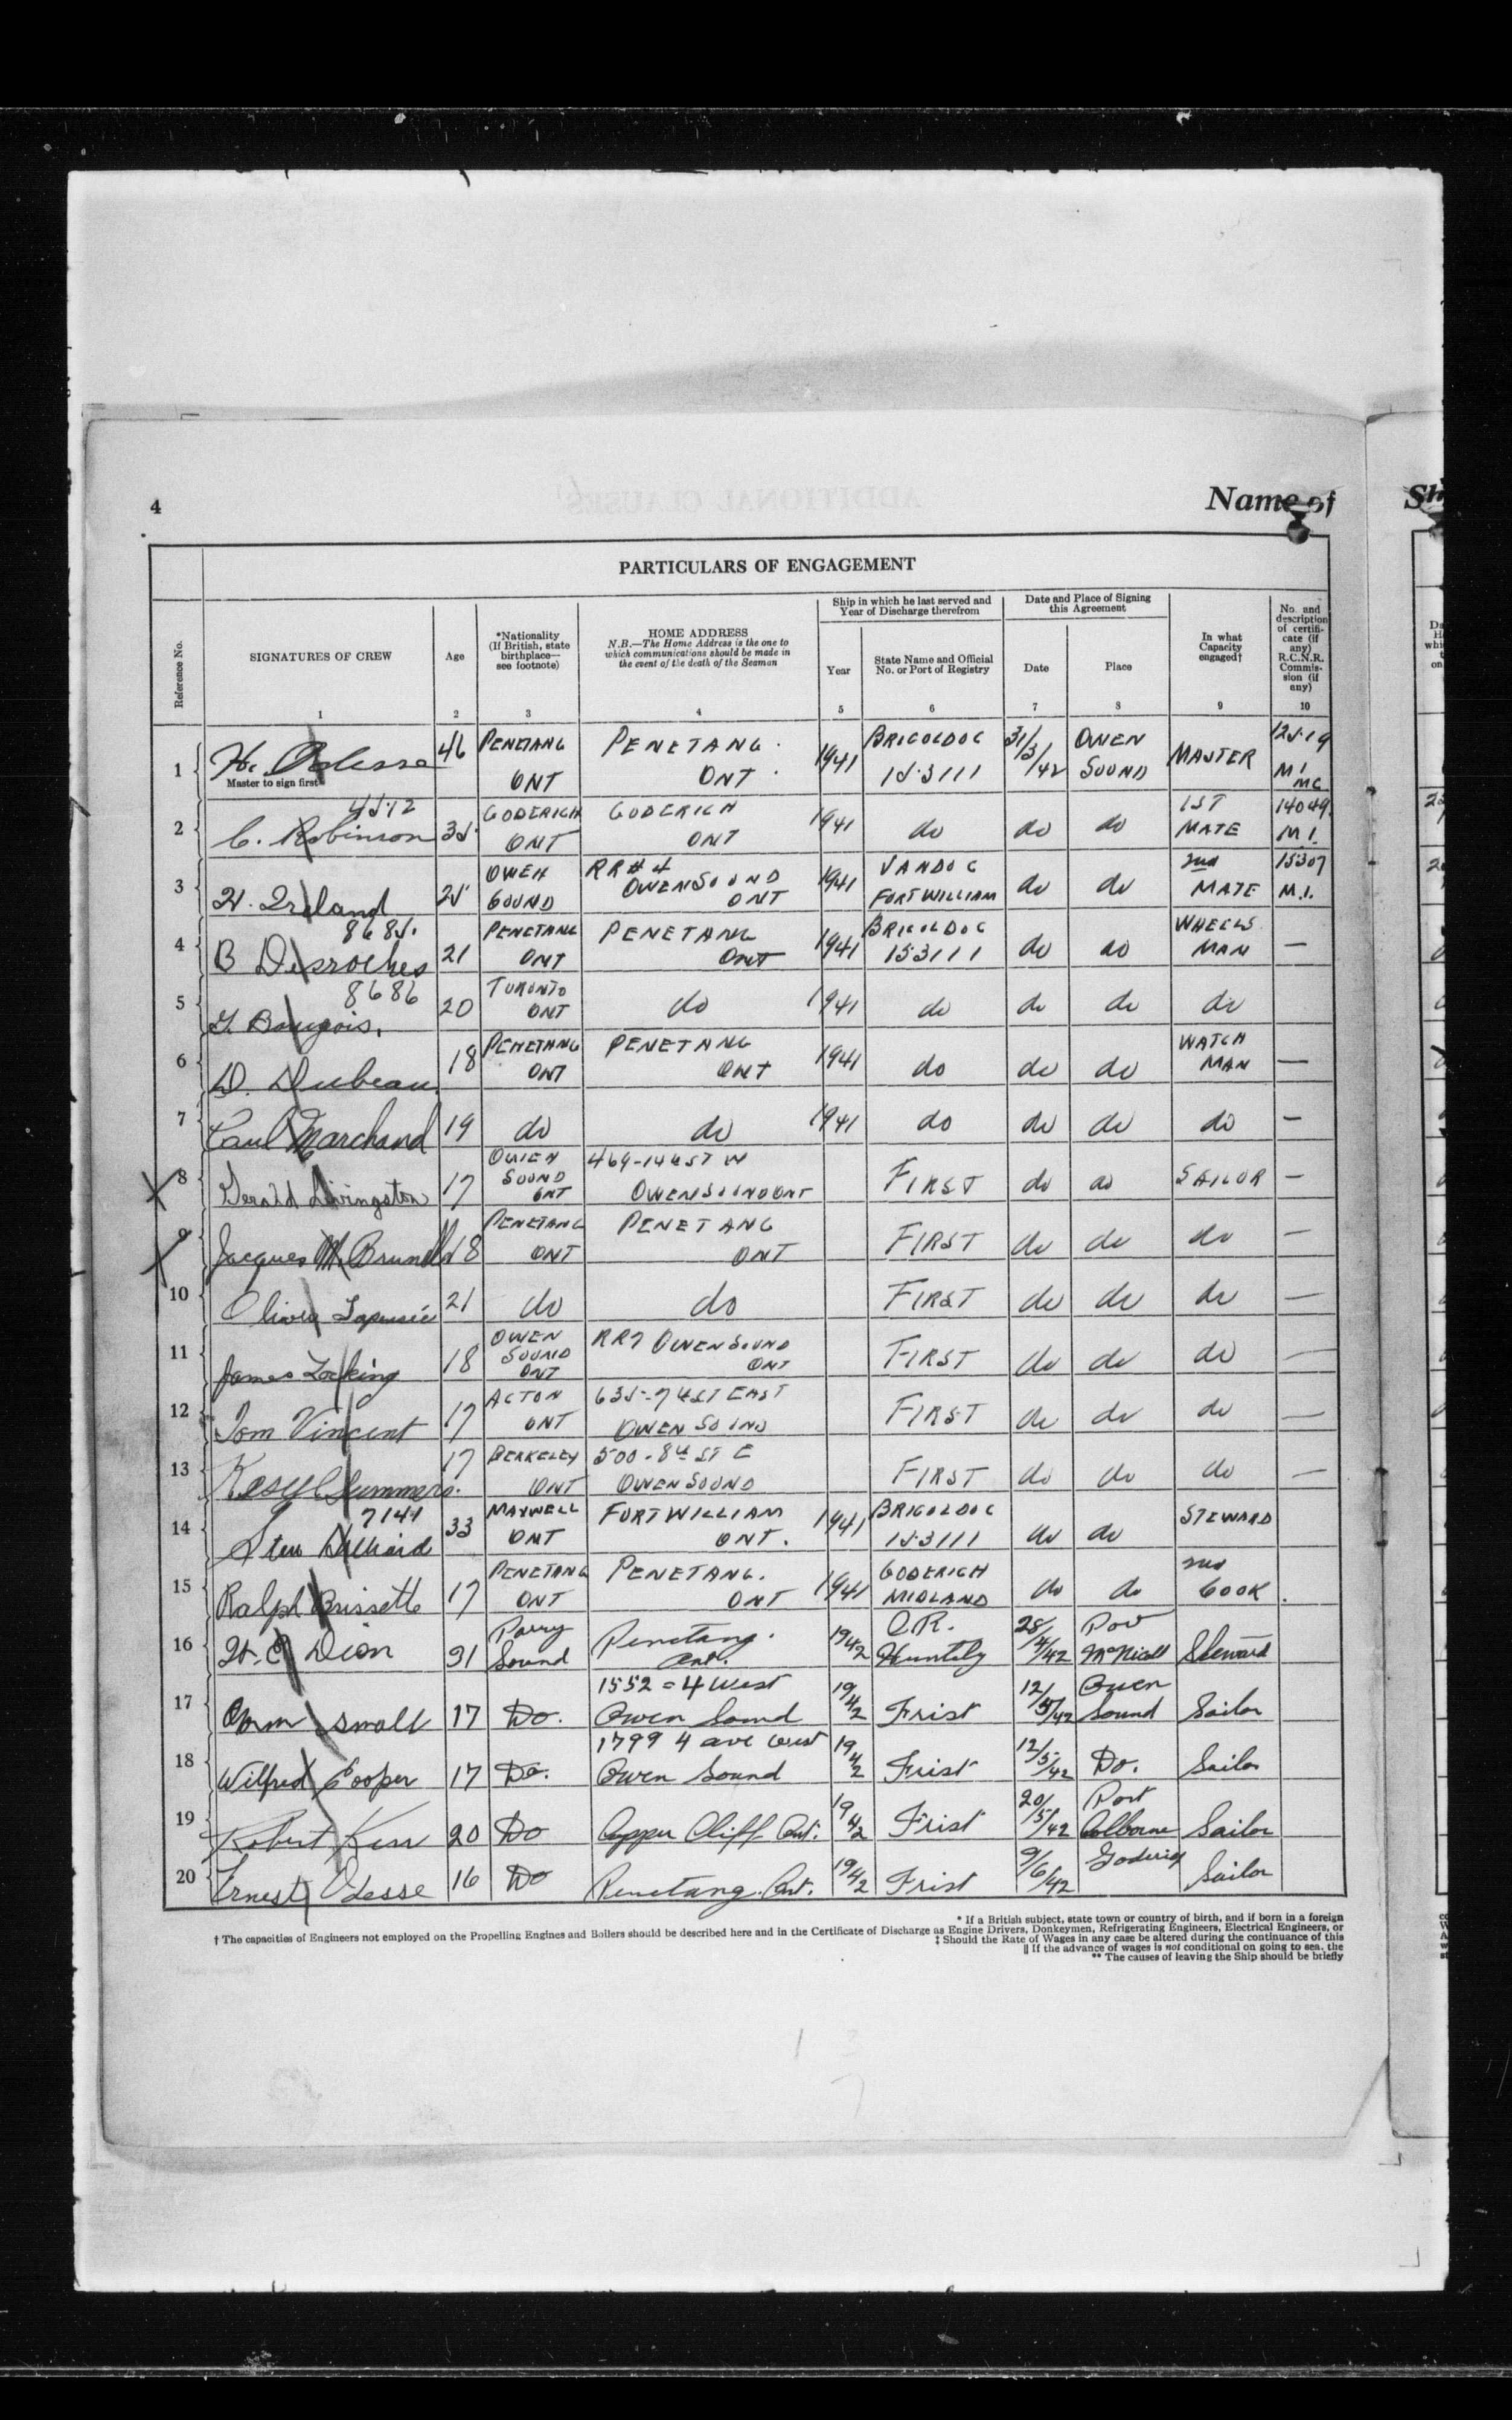 4
Name of
Sh
PARTICULARS OF ENGAGEMENT
Reference No.
SIGNATURES OF CREW
1
Age
2
*Nationality
(If British, state
birthplace—
see footnote)
3
HOME ADDRESS
N.B.—The Home Address is the one to
which communications should be made in
the event of the death of the Seaman
4
Ship in which he last served and
Year of Discharge therefrom
Year
5
State Name and Official
No. or Port of Registry
6
Date and Place of Signing
this Agreement
Date
7
Place
8
In what
Capacity
engaged†
9
No. and
description
of certifi-
cate (if
any)
R.C.N.R.
Commis-
sion (if
any)
10
1 46 PENETANG ONT PENETANG. ONT. 1941 BRICOLDOC 153111 31/3/42 OWEN SOUND MASTER 12519 M1 MC
Master to sign first
2 4512 C. Robinson 35 GODERICH ONT GODERICH ONT 1941 do do do 1ST MATE 14049 M1.
3 H. Ireland 25 OWEN SOUND RR#4 OWEN SOUND ONT 1941 VANDOC FORT WILLIAM do do 2nd MATE 15307 M.1.
4 8685. B Desroches 21 PENETANG ONT PENETANG ONT 1941 BRICOLDOC 153111 do do WHEELS MAN —
5 8686 20 TORONTO ONT do 1941 do do do do
6 D. Dubeau 18 PENETANG ONT PENETANG ONT 1941 do do do WATCH MAN —
7 Paul Marchand 19 do do 1941 do do do do —
X 8 Gerald Livingston 17 OWEN SOUND ONT 469-14th ST W OWEN SOUND ONT FIRST do do SAILOR —
X 9 Jacques M. Brunelle 18 PENETANG ONT PENETANG ONT FIRST do do do —
10 21 do do FIRST do do do —
11 James Locking 18 OWEN SOUND ONT RR7 OWEN SOUND ONT FIRST do do do —
12 Tom Vincent 17 ACTON ONT 635-7th ST EAST OWEN SOUND FIRST do do do —
13 Summers. 17 BERKELEY ONT 500-8th ST E OWEN SOUND FIRST do do do —
14 7141 Stew 33 MAXWELL ONT FORT WILLIAM ONT. 1941 BRICOLDOC 153111 do do STEWARD
15 Ralph Brissette 17 PENETANG ONT PENETANG. ONT 1941 GODERICH MIDLAND do do 2nd COOK
16 Dion 31 Parry Sound Penetang. Ont. 1942 Huntly 28/4/42 Por McNicoll Steward
17 Small 17 Do. 1552 = 4 West Owen Sound 1942 Frist 12/5/42 Owen Sound Sailor
18 Wilfred Cooper 17 Do. 1799 4 ave West Owen Sound 1942 Frist 12/5/42 Do. Sailor
19 Robert Kerr 20 Do Copper Cliff Ont. 1942 Frist 20/5/42 Port Colborne Sailor
20 Ernest Odesse 16 Do Penetang. Ont. 1942 Frist 9/6/42 Goderich Sailor
* If a British subject, state town or country of birth, and if born in a foreign
† The capacities of Engineers not employed on the Propelling Engines and Boilers should be described here and in the Certificate of Discharge as Engine Drivers, Donkeymen, Refrigerating Engineers, Electrical Engineers, or
‡ Should the Rate of Wages in any case be altered during the continuance of this
|| If the advance of wages is not conditional on going to sea, the
** The causes of leaving the Ship should be briefly